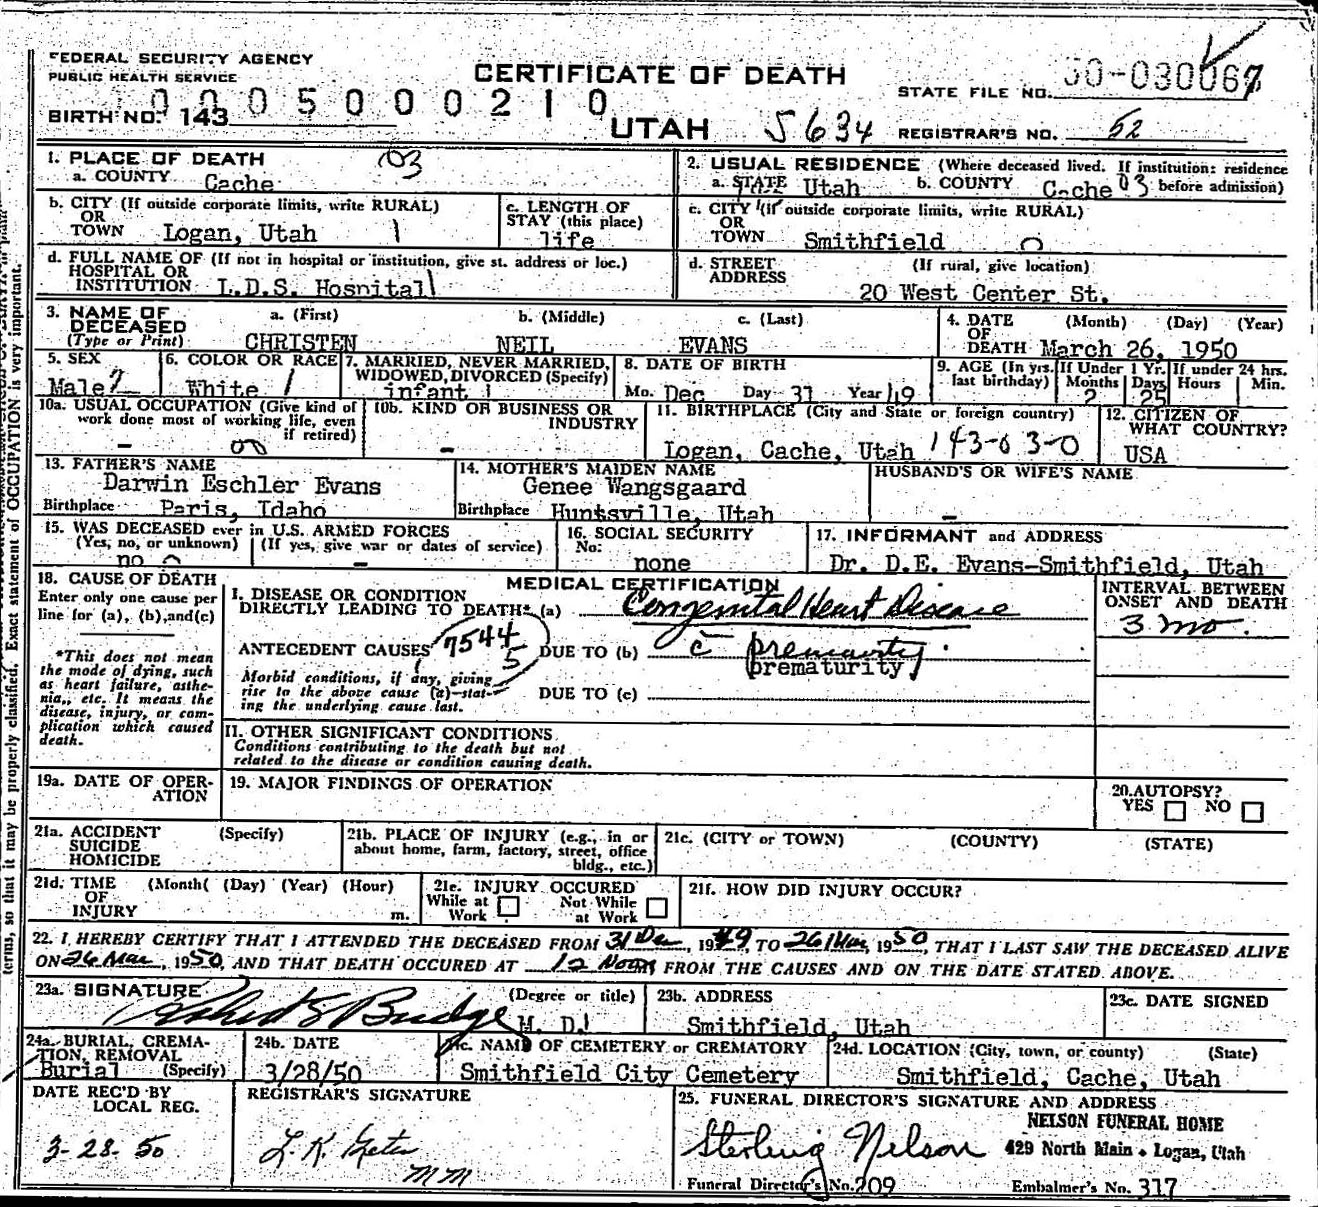 FEDERAL SECURITY AGENCY
PUBLIC HEALTH SERVICE
CERTIFICATE OF DEATH
STATE FILE NO. 50-030067
0005000210
BIRTH NO. 143
UTAH 5634
REGISTRAR'S NO. 52
1. PLACE OF DEATH 03
a. COUNTY Cache
2. USUAL RESIDENCE (Where deceased lived. If institution: residence before admission)
a. STATE Utah b. COUNTY Cache 03
b. CITY (If outside corporate limits, write RURAL)
OR
TOWN Logan, Utah 1
c. LENGTH OF STAY (this place)
life
c. CITY (if outside corporate limits, write RURAL)
OR
TOWN Smithfield 0
d. FULL NAME OF (If not in hospital or institution, give st. address or loc.)
HOSPITAL OR
INSTITUTION L.D.S. Hospital
d. STREET ADDRESS (If rural, give location)
20 West Center St.
3. NAME OF DECEASED (Type or Print)
a. (First) b. (Middle) c. (Last)
CHRISTEN NEIL EVANS
4. DATE OF DEATH (Month) (Day) (Year)
March 26, 1950
5. SEX
Male
6. COLOR OR RACE
White 1
7. MARRIED, NEVER MARRIED, WIDOWED, DIVORCED (Specify)
infant
8. DATE OF BIRTH
Mo. Dec Day 31 Year 49
9. AGE (In yrs. last birthday) If Under 1 Yr. Months Days If under 24 hrs. Hours Min.
2 25
10a. USUAL OCCUPATION (Give kind of work done most of working life, even if retired)
-
10b. KIND OR BUSINESS OR INDUSTRY
-
11. BIRTHPLACE (City and State or foreign country)
Logan, Cache, Utah 143-03-0
12. CITIZEN OF WHAT COUNTRY?
USA
13. FATHER'S NAME
Darwin Eschler Evans
Birthplace Paris, Idaho
14. MOTHER'S MAIDEN NAME
Genee Wangsgaard
Birthplace Huntsville, Utah
HUSBAND'S OR WIFE'S NAME
-
15. WAS DECEASED ever in U.S. ARMED FORCES
(Yes, no, or unknown) (If yes, give war or dates of service)
no -
16. SOCIAL SECURITY No:
none
17. INFORMANT and ADDRESS
Dr. D.E. Evans-Smithfield, Utah
18. CAUSE OF DEATH
Enter only one cause per line for (a), (b), and (c)
*This does not mean the mode of dying, such as heart failure, asthenia, etc. It means the disease, injury, or complication which caused death.
MEDICAL CERTIFICATION
I. DISEASE OR CONDITION
DIRECTLY LEADING TO DEATH* (a) Congenital Heart Disease
ANTECEDENT CAUSES 7544 5 DUE TO (b) c̄ prematurity.
prematurity
Morbid conditions, if any, giving rise to the above cause (a)-stating the underlying cause last.
DUE TO (c)
INTERVAL BETWEEN ONSET AND DEATH
3 mo.
II. OTHER SIGNIFICANT CONDITIONS
Conditions contributing to the death but not related to the disease or condition causing death.
19a. DATE OF OPERATION
19. MAJOR FINDINGS OF OPERATION
20. AUTOPSY?
YES NO
21a. ACCIDENT SUICIDE HOMICIDE (Specify)
21b. PLACE OF INJURY (e.g., in or about home, farm, factory, street, office bldg., etc.)
21c. (CITY or TOWN) (COUNTY) (STATE)
21d. TIME OF INJURY (Month( (Day) (Year) (Hour)
m.
21e. INJURY OCCURED
While at Work Not While at Work
21f. HOW DID INJURY OCCUR?
22. I HEREBY CERTIFY THAT I ATTENDED THE DECEASED FROM 31 Dec, 1949, TO 26 Mar, 1950, THAT I LAST SAW THE DECEASED ALIVE
ON 26 Mar, 1950, AND THAT DEATH OCCURED AT 12 Noon FROM THE CAUSES AND ON THE DATE STATED ABOVE.
23a. SIGNATURE (Degree or title)
Robert S Budge M. D.
23b. ADDRESS
Smithfield, Utah
23c. DATE SIGNED
24a. BURIAL, CREMATION, REMOVAL (Specify)
Burial
24b. DATE
3/28/50
24c. NAME OF CEMETERY or CREMATORY
Smithfield City Cemetery
24d. LOCATION (City, town, or county) (State)
Smithfield, Cache, Utah
DATE REC'D BY LOCAL REG.
3-28-50
REGISTRAR'S SIGNATURE
L. K.
MM
25. FUNERAL DIRECTOR'S SIGNATURE AND ADDRESS
NELSON FUNERAL HOME
Sterling Nelson 429 North Main • Logan, Utah
Funeral Director's No. 209 Embalmer's No. 317
terms, so that it may be properly classified. Exact statement of OCCUPATION is very important.